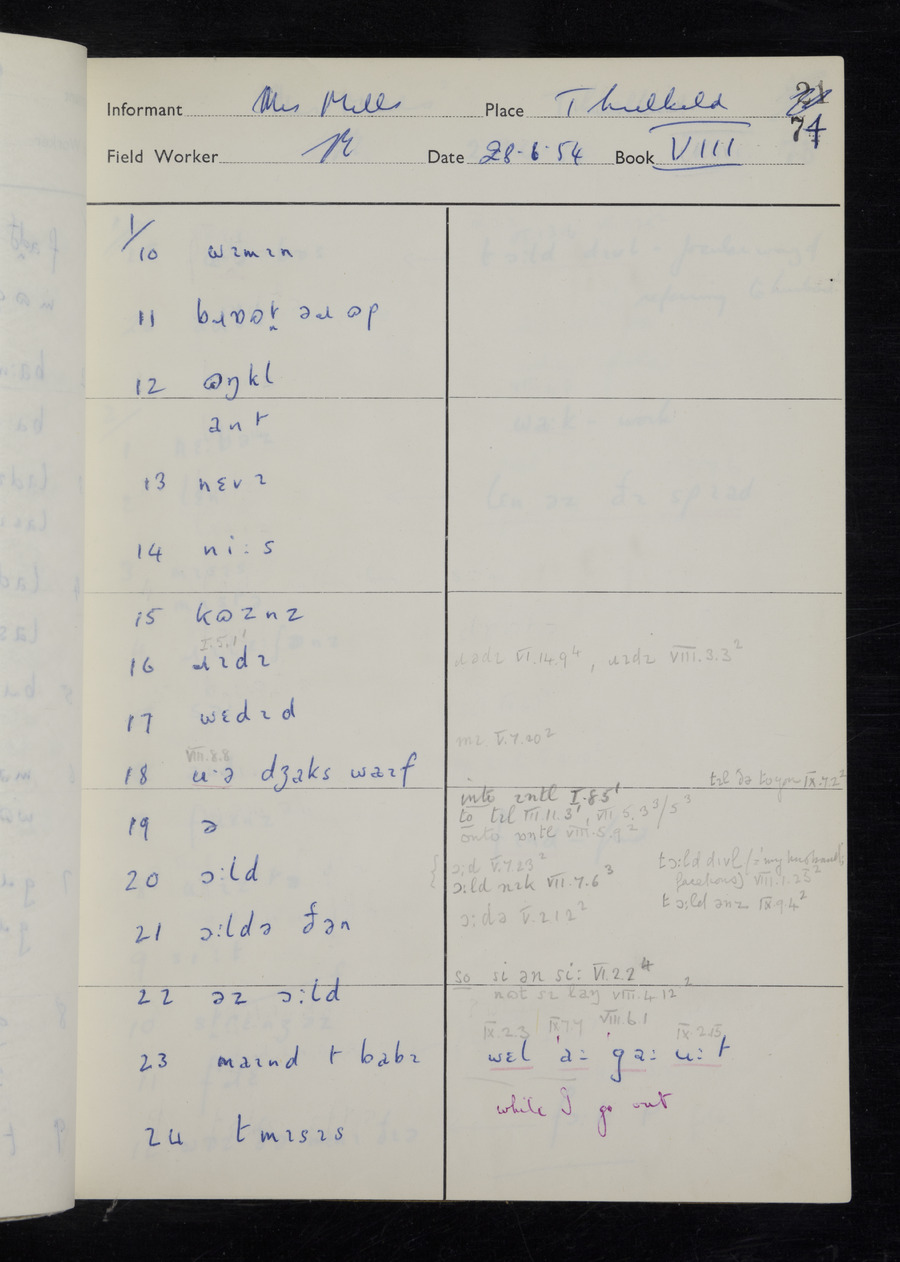 Informant Mrs Mills Place Threlkeld 21
74
Field Worker Date 28·6·54 Book VIII
1/
10 wɪmɪn
11 əɹ ɷp
12 ɷŋkl
ant
13 nɛvɪ
14 ni:s
15 kɷznz
I.5.1¹
16 ɹɪdɪ ɹədɪ VI.14.9⁴, ɹɪdɪ VIII.3.3²
17 wɛdɪd
mɪ V.7.20²
VIII.8.8
18 u·ə dʒaks waɪf
into ɪntl I.8.5¹ tɪl ðə IX.7.2²
19 ə to tɪl III.11.3¹, VII.5.3³/5³
onto ɷntl VIII.5.9²
20 ɔ:ld ɔ:d V.7.23² tɔ:ld dɪvl (= my husband
ɔ:ld nɪk VII.7.6³ facetious) VIII.1.25²
tɔ:ld anz IX.9.4²
21 ɔ:ldə ðən ɔ:də V.2.12²
so si ən si: VI.2.2⁴
22 əz ɔ:ld not sɪ laŋ VIII.4.12²
IX.2.3 IX.7.4 VIII.6.1 IX.2.15
23 maɪnd t babɪ wɛl a: ga: u:t
while I go out
24 t mɪsɪs